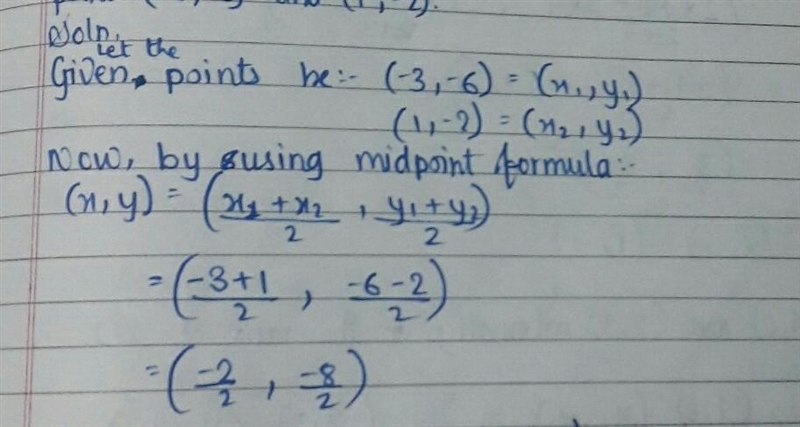 and (1, -2).
Soln,
let the
Given points be:- (-3, -6) = (x₁, y₁)
(1, -2) = (x₂, y₂)
Now, by using midpoint formula:-
(x, y) = (x₁ + x₂ / 2 , y₁ + y₂ / 2)
= (-3+1 / 2 , -6-2 / 2)
= (-2 / 2 , -8 / 2)